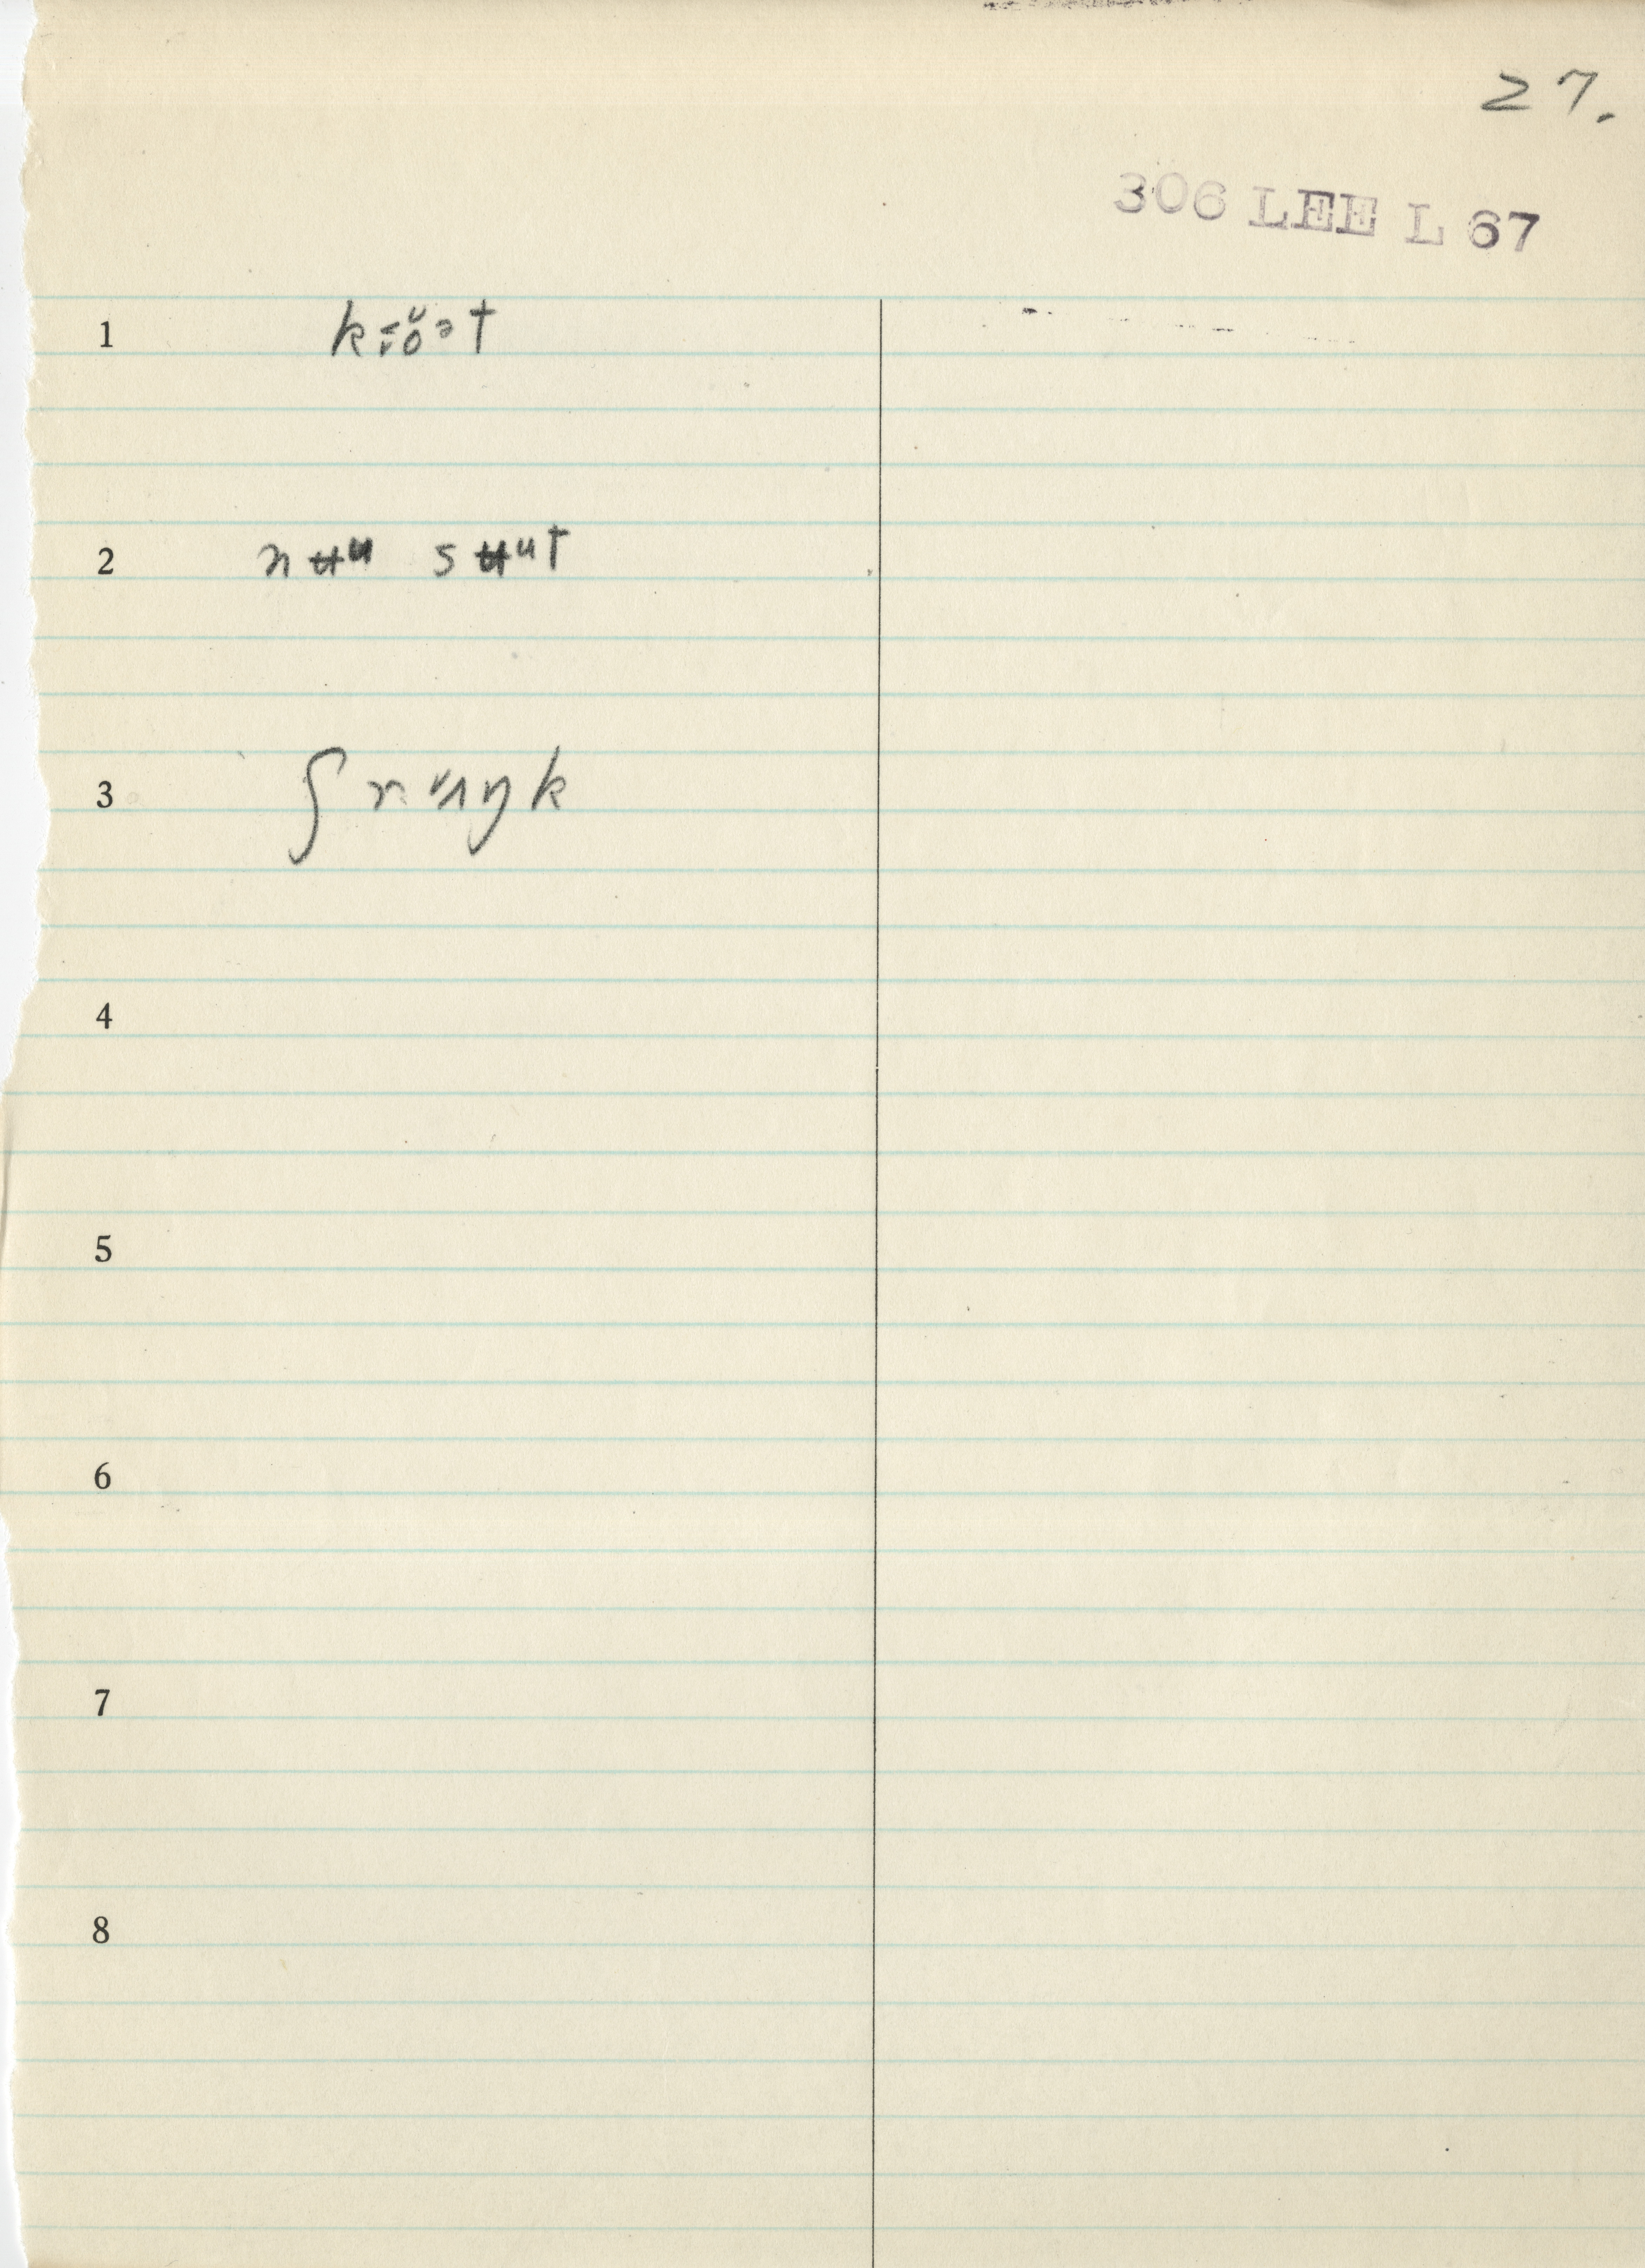 27.
306 LEE L 67
1
2 nʉᵘ sʉᵘt
3 ʃrʌŋk
4
5
6
7
8